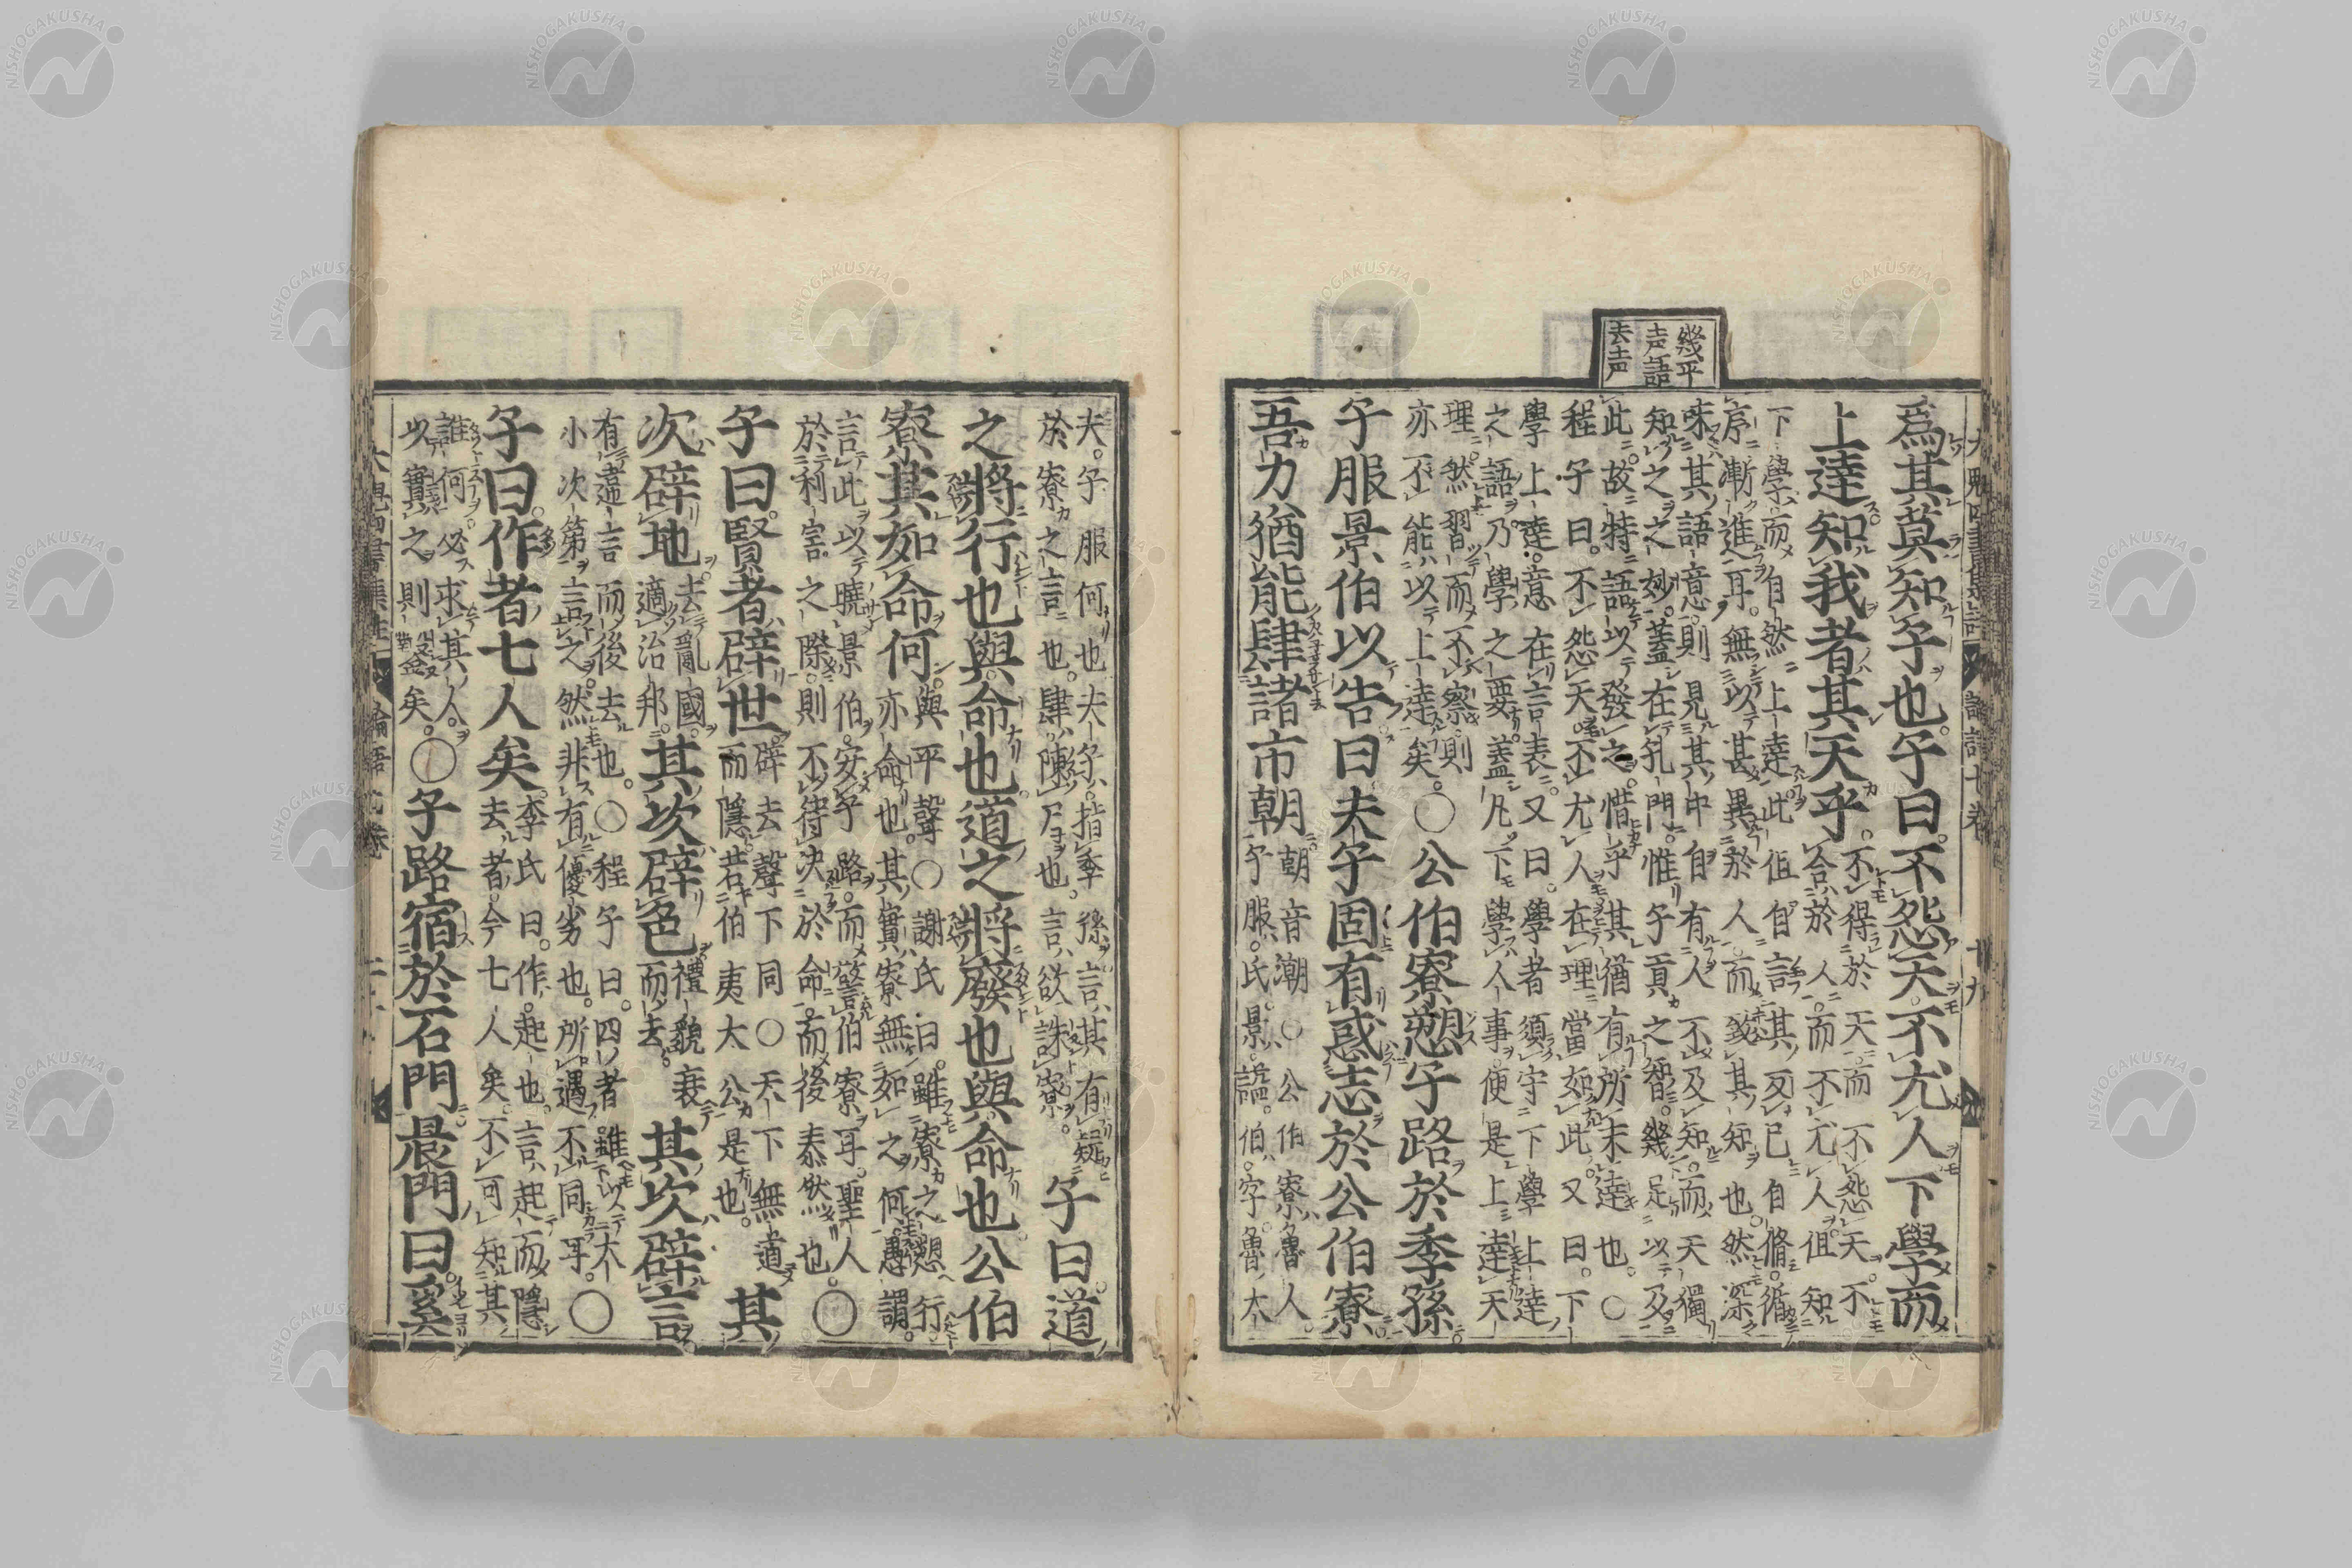 幾平
声語
去声
大魁四書集註 論語七卷 十九
爲其莫知子也子曰不怨天不尤人下學而
上達知我者其天乎
不得於天而不怨天不
合於人而不尤人但知
下學而自然上達此但自言其反己自脩循
序漸進耳無以甚異於人而致其知也然深
味其語意則見其中自有人不及知而天獨
知之之妙蓋在孔門惟子貢之智幾足以及
此故特語以發之惜乎其猶有所未達也○
程子曰不怨天不尤人在理當如此又曰下
學上達意在言表又曰學者須守下學上達
之語乃學之要蓋凡下學人事便是上達天
理然習而不察則
亦不能以上達矣
○公伯寮愬子路於季孫
子服景伯以告曰夫子固有惑志於公伯寮
吾力猶能肆諸市朝
朝音潮○公伯寮魯人
子服氏景謚伯字魯大
夫子服何也夫子指季孫言其有疑
於寮之言也肆陳尸也言欲誅寮
子曰道
之將行也與命也道之將廢也與命也公伯
寮其如命何
與平聲○謝氏曰雖寮之愬行
亦命也其實寮無如之何愚謂
言此以曉景伯安子路而警伯寮耳聖人
於利害之際則不待決於命而後泰然也
○
子曰賢者辟世
辟去聲下同○天下無道
而隱若伯夷大公是也
其
次辟地
去亂國
適治邦
其次辟色
禮貌衰
而去
其次辟言
有違言而後去也○程子曰四者雖以大
小次第言之然非有優劣也所遇不同耳
○
子曰作者七人矣
李氏曰作起也言起而隱
去者今七人矣不可知其
誰何必求其人
以實之則鑿矣
○子路宿於石門晨門曰奚
NISHOGAKUSHA